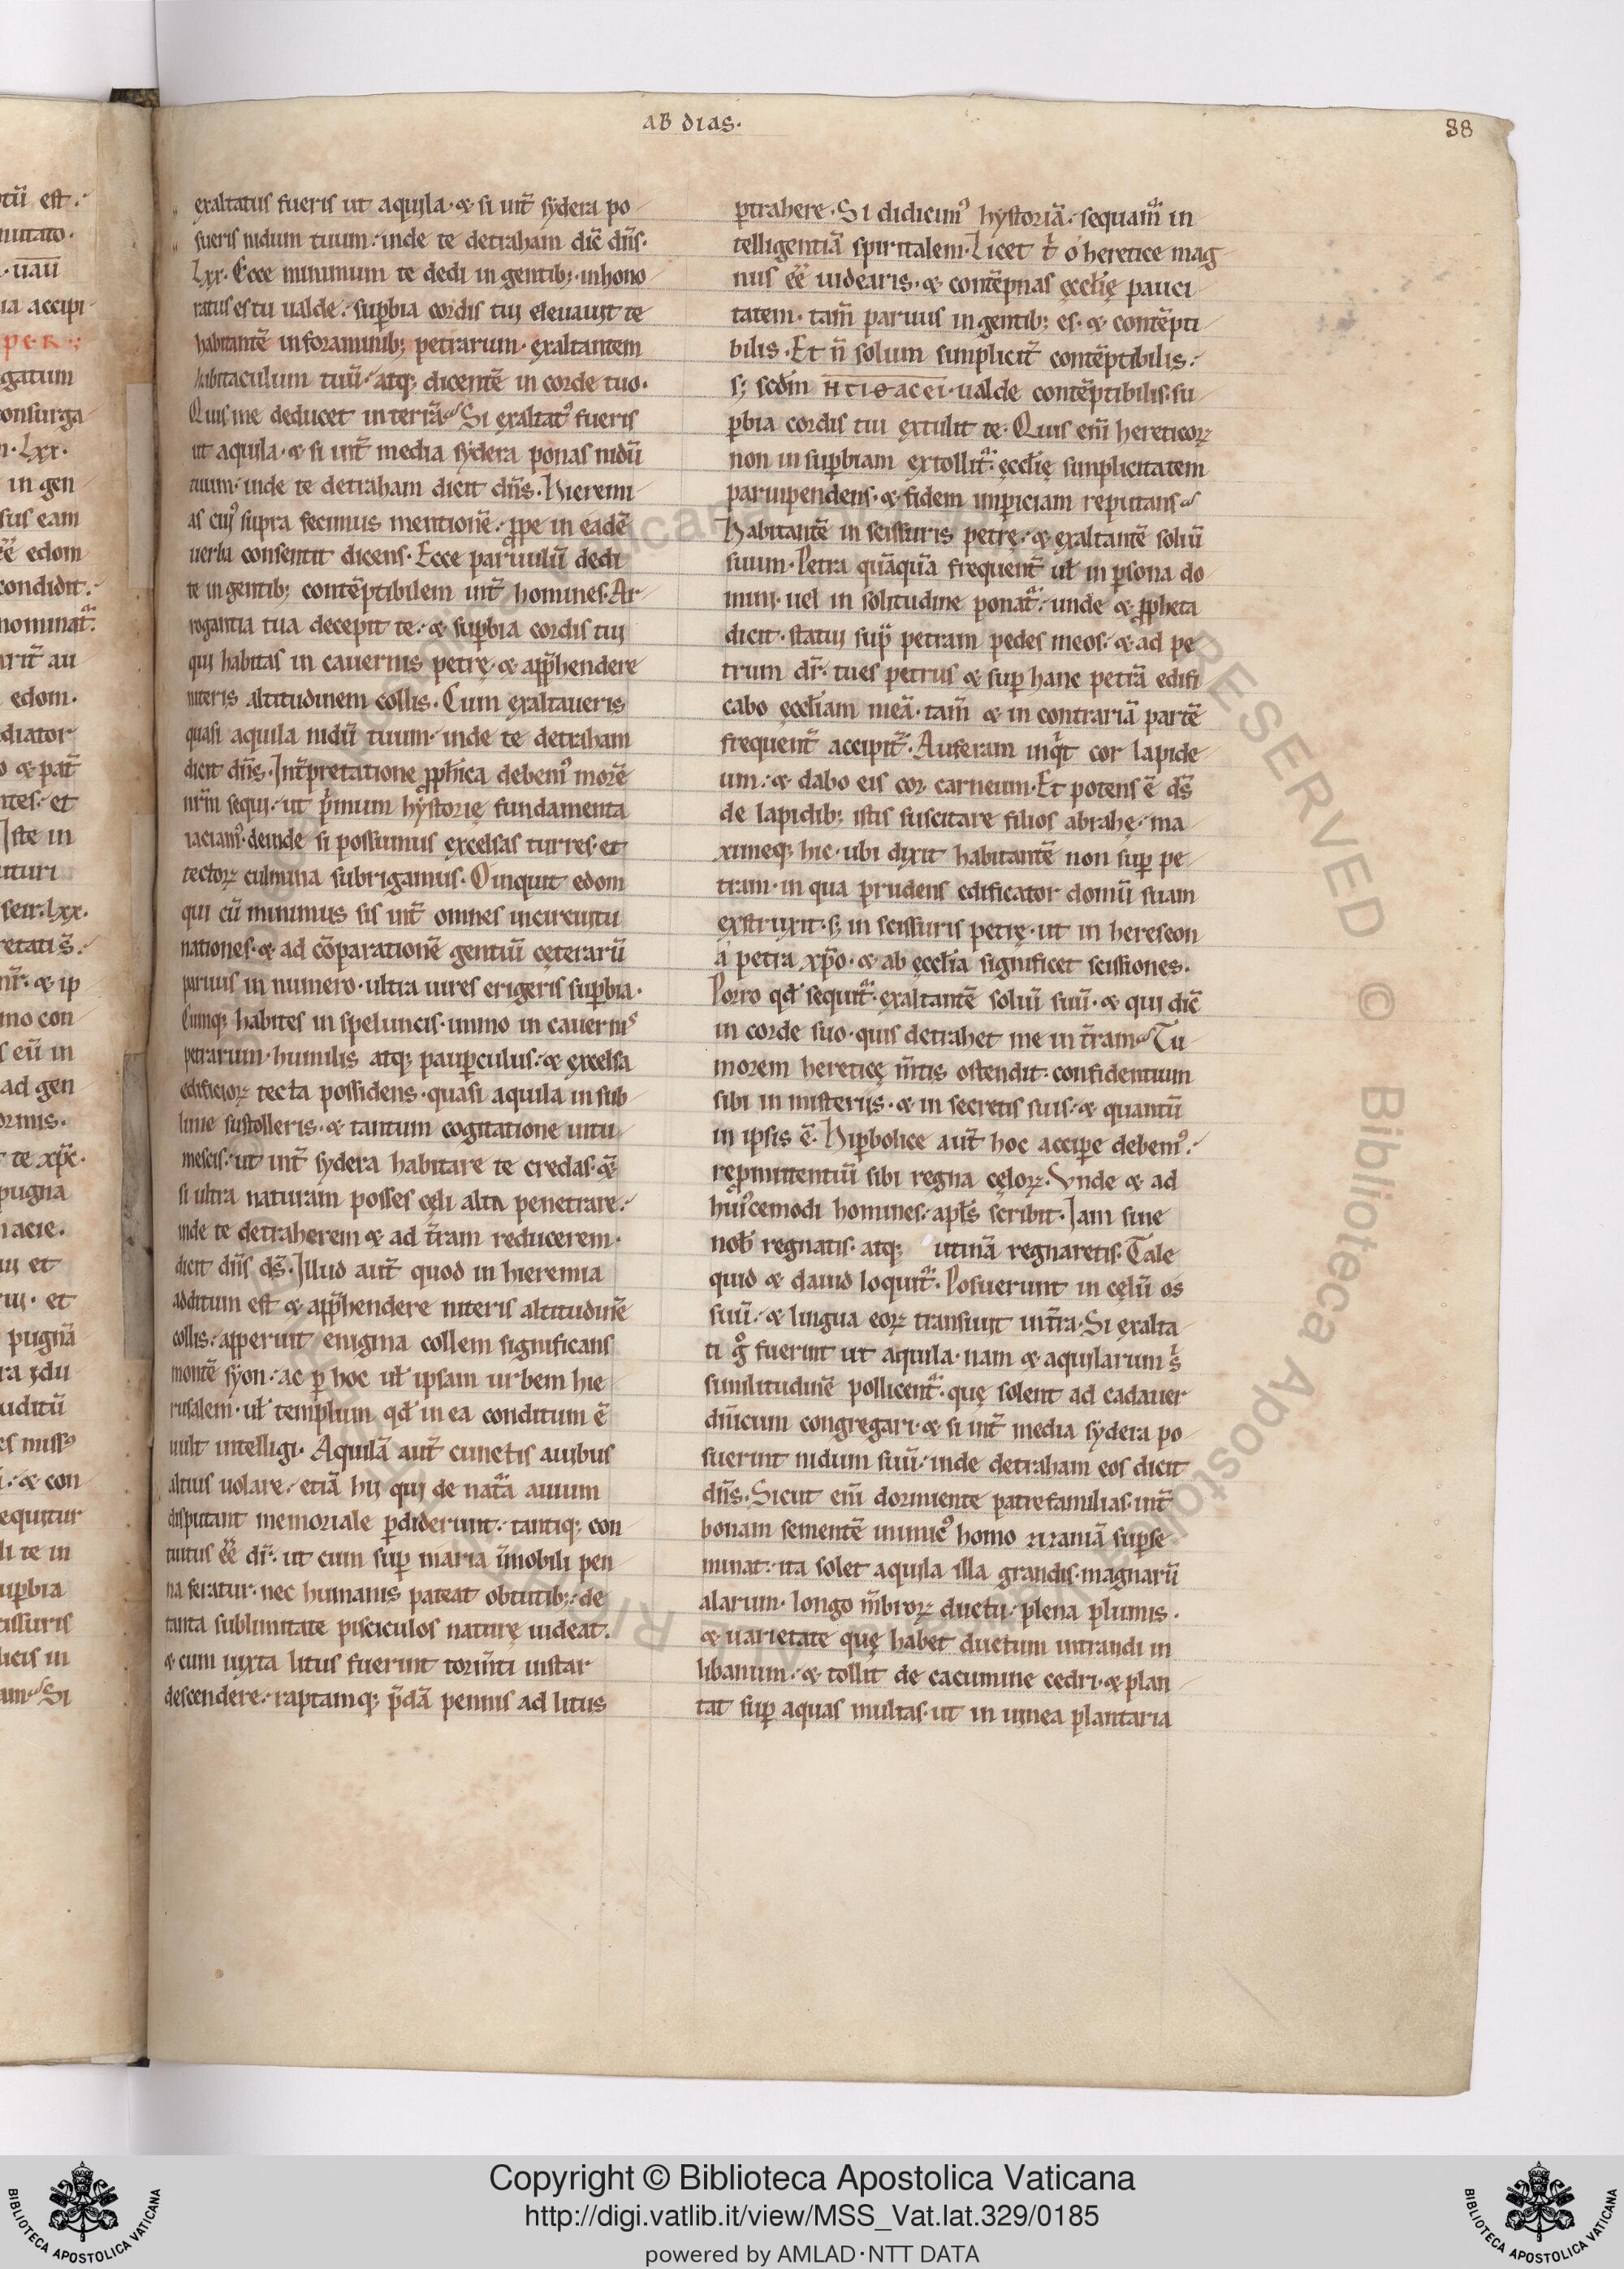 AB DIAS.
88
exaltatus fueris ut aquila. & si int̄ sydera po
sueris nidum tuum: inde te detraham dic̄ dn̄s.
Lxx. Ecce minimum te dedi in gentib;. inhono
ratus es tu ualde: suꝑbia cordis tui eleuauit te
habitantē in foraminib; petrarum. exaltantem
habitaculum tuū. atq; dicentē in corde tuo.
Quis me deducet in terrā. Si exaltat᾽ fueris
ut aquila. & si int̄ media sydera ponas nidū
tuum. inde te detraham dicit dn̄s. Hieremi
as cui᾽ supra fecimus mentionē. ꝓpe in eadē
uerba consentit dicens. Ecce paruulū dedi
te in gentib; contēptibilem int̄ homines. Ar
rogantia tua decepit te: & suꝑbia cordis tui
qui habitas in cauernis petrę. & app̄hendere
niteris altitudinem collis. Cum exaltaueris
quasi aquila nidū tuum. inde te detraham
dicit dn̄s. Int̄pretatione ꝓph̄ica debem᾽ morē
nr̄m sequi. ut pͥmum hystorię fundamenta
iaciam᾽. deinde si possumus excelsas turres. et
tectoꝝ culmina subrigamus. O inquit edom
qui cū minimus sis int̄ omnes in circuitu
nationes. & ad cōparationē gentiū cęterarū
paruus in numero. ultra uires erigeris suꝑbia.
Cumq; habites in speluncis. immo in cauernis
petrarum. humilis atq; pauꝑculus. & excelsa
edificioꝝ tecta possidens. quasi aquila in sub
lime sustolleris. & tantum cogitatione intu
mescis. ut int̄ sydera habitare te credas. &
si ultra naturam posses cęli alta penetrare:
inde te detraherem & ad t̄ram reducerem.
dicit dn̄s ds̄. Illud aut̄ quod in hieremia
additum est & app̄hendere niteris altitudinē
collis: apperuit enigma collem significans
montē syon: ac ꝑ hoc ul̄ ipsam urbem hie
rusalem. ul̄ templum qd̄ in ea conditum ē
uult intelligi. Aquilā aut̄ cunctis auibus
altius uolare: etiā hii qui de natᷓa auium
disputant memoriale ꝑdiderunt: tantiq; con
tuitus ēē dr̄. ut cum suꝑ maria īmobili pen
na feratur. nec humanis pateat obtutib;: de
tanta sublimitate pisciculos naturę uideat.
& cum iuxta litus fuerint torm̄ti instar
descendere: raptamq; p̄dā pennis ad litus
ꝑtrahere. Si didicim᾽ hystoriā: sequamᷓ in
telligentiā spiritalem. Licet tͥ o heretice mag
nus ēē uidearis. & contēpnas ęccl̄ię pauci
tatem. tam̄ paruus in gentib; es. & contēpti
bilis. Et n̄ solum simplicit̄ contēptibilis:
s; scdm̄ ualde contēptibilis. su
ꝑbia cordis tui extulit te. Quis eni̅ hereticoꝝ
non in suꝑbiam extollitᷓ. ęccl̄ię simplicitatem
paruipendens. & fidem inꝑiciam reputans.
Habitantē in scissuris petrę: & exaltantē soliū
suum. Petra quāquā frequent̄ ul̄ in ꝑsona do
mini. uel in solitudine ponatᷓ: unde & ꝓpheta
dicit. statui suꝑ petram pedes meos: & ad pe
trum dr̄. tu es petrus & suꝑ hanc petrā edifi
cabo ęccl̄iam meā. tam̄ & in contrariā partē
frequent̄ accipitᷓ. Auferam inqͥt cor lapide
um: & dabo eis cor carneum. Et potens ē ds̄
de lapidib; istis suscitare filios abrahę. ma
ximeq; hic. ubi dixit habitantē non suꝑ pe
tram. in qua prudens edificator domū suam
exstruxit. s; in scissuris petrę. ut in hereseon
a petra xp̄o. & ab ęccl̄ia significet scissiones.
Porro qd̄ sequitᷓ. exaltantē soliū suū. & qui dic̄
in corde suo. quis detrahet me in t̄ram. Tu
morem hereticę m̄tis ostendit. confidentium
sibi in misteriis. & in secretis suis. & quantū
in ipsis ē. Hiꝑbolice aut̄ hoc acciꝑe debem᾽:
reꝓmittentiū sibi regna cęloꝝ. Vnde & ad
hui᾽cemodi homines: apl̄s scribit. Iam sine
nob̄ regnatis. atq; utinā regnaretis. Tale
quid & dauid loquitᷓ. Posuerunt in cęlū os
suū. & lingua eoꝝ transiuit in t̄ra. Si exalta
ti gͦ fuerint ut aquila. nam & aquilarum sͥ
similitudinē pollicentᷓ. quę solent ad cadauer
diūicum congregari. & si int̄ media sydera po
suerint nidum suū. inde detraham eos dicit
dn̄s. Sicut eni̅ dormiente patrefamilias. int̄
bonam sementē inimic᾽ homo zizaniā suꝑse
minat. ita solet aquila illa grandis. magnarū
alarum. longo m̄broꝝ ductu. plena plumis.
& uarietate quę habet ductum intrandi in
libanum. & tollit de cacumine cedri. & plan
tat suꝑ aquas multas. ut in uinea plantaria
Copyright © Biblioteca Apostolica Vaticana
http://digi.vatlib.it/view/MSS_Vat.lat.329/0185
powered by AMLAD·NTT DATA